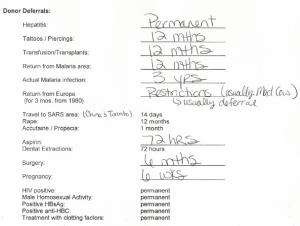 Donor Deferrals:
Hepatitis: Permanent
Tattoos / Piercings: 12 mths
Transfusion/Transplants: 12 mths
Return from Malaria area: 12 mths
Actual Malaria infection: 3 yrs
Return from Europa Restrictions (usually Mad Cow)
(for 3 mos. from 1980) usually deferral
Travel to SARS area: (China & Toronto) 14 days
Rape: 12 months
Accutane / Propecia: 1 month
Aspirin: 72 hrs
Dental Extractions: 72 hours
Surgery: 6 mths
Pregnancy: 6 wks
HIV positive: permanent
Male Homosexual Activity: permanent
Positive HBsAg: permanent
Positive anti-HBC: permanent
Treatment with clotting factors: permanent